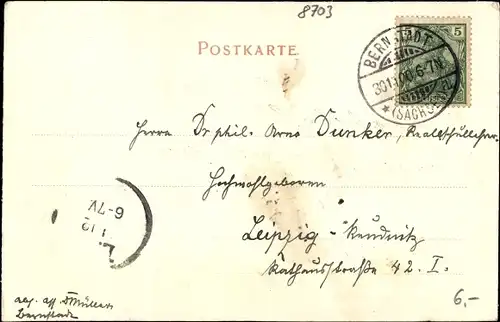 8703
POSTKARTE
5
BERNSTADT
6-7N.
*(SACHSEN)
Herrn Dr phil. Arno Dunker, Realschullehrer.
Hochwohlgeboren
Leipzig - Reudnitz
Rathausstraße 42. I.
1 12
6-7V
L.
Müller
Bernstadt
6,-